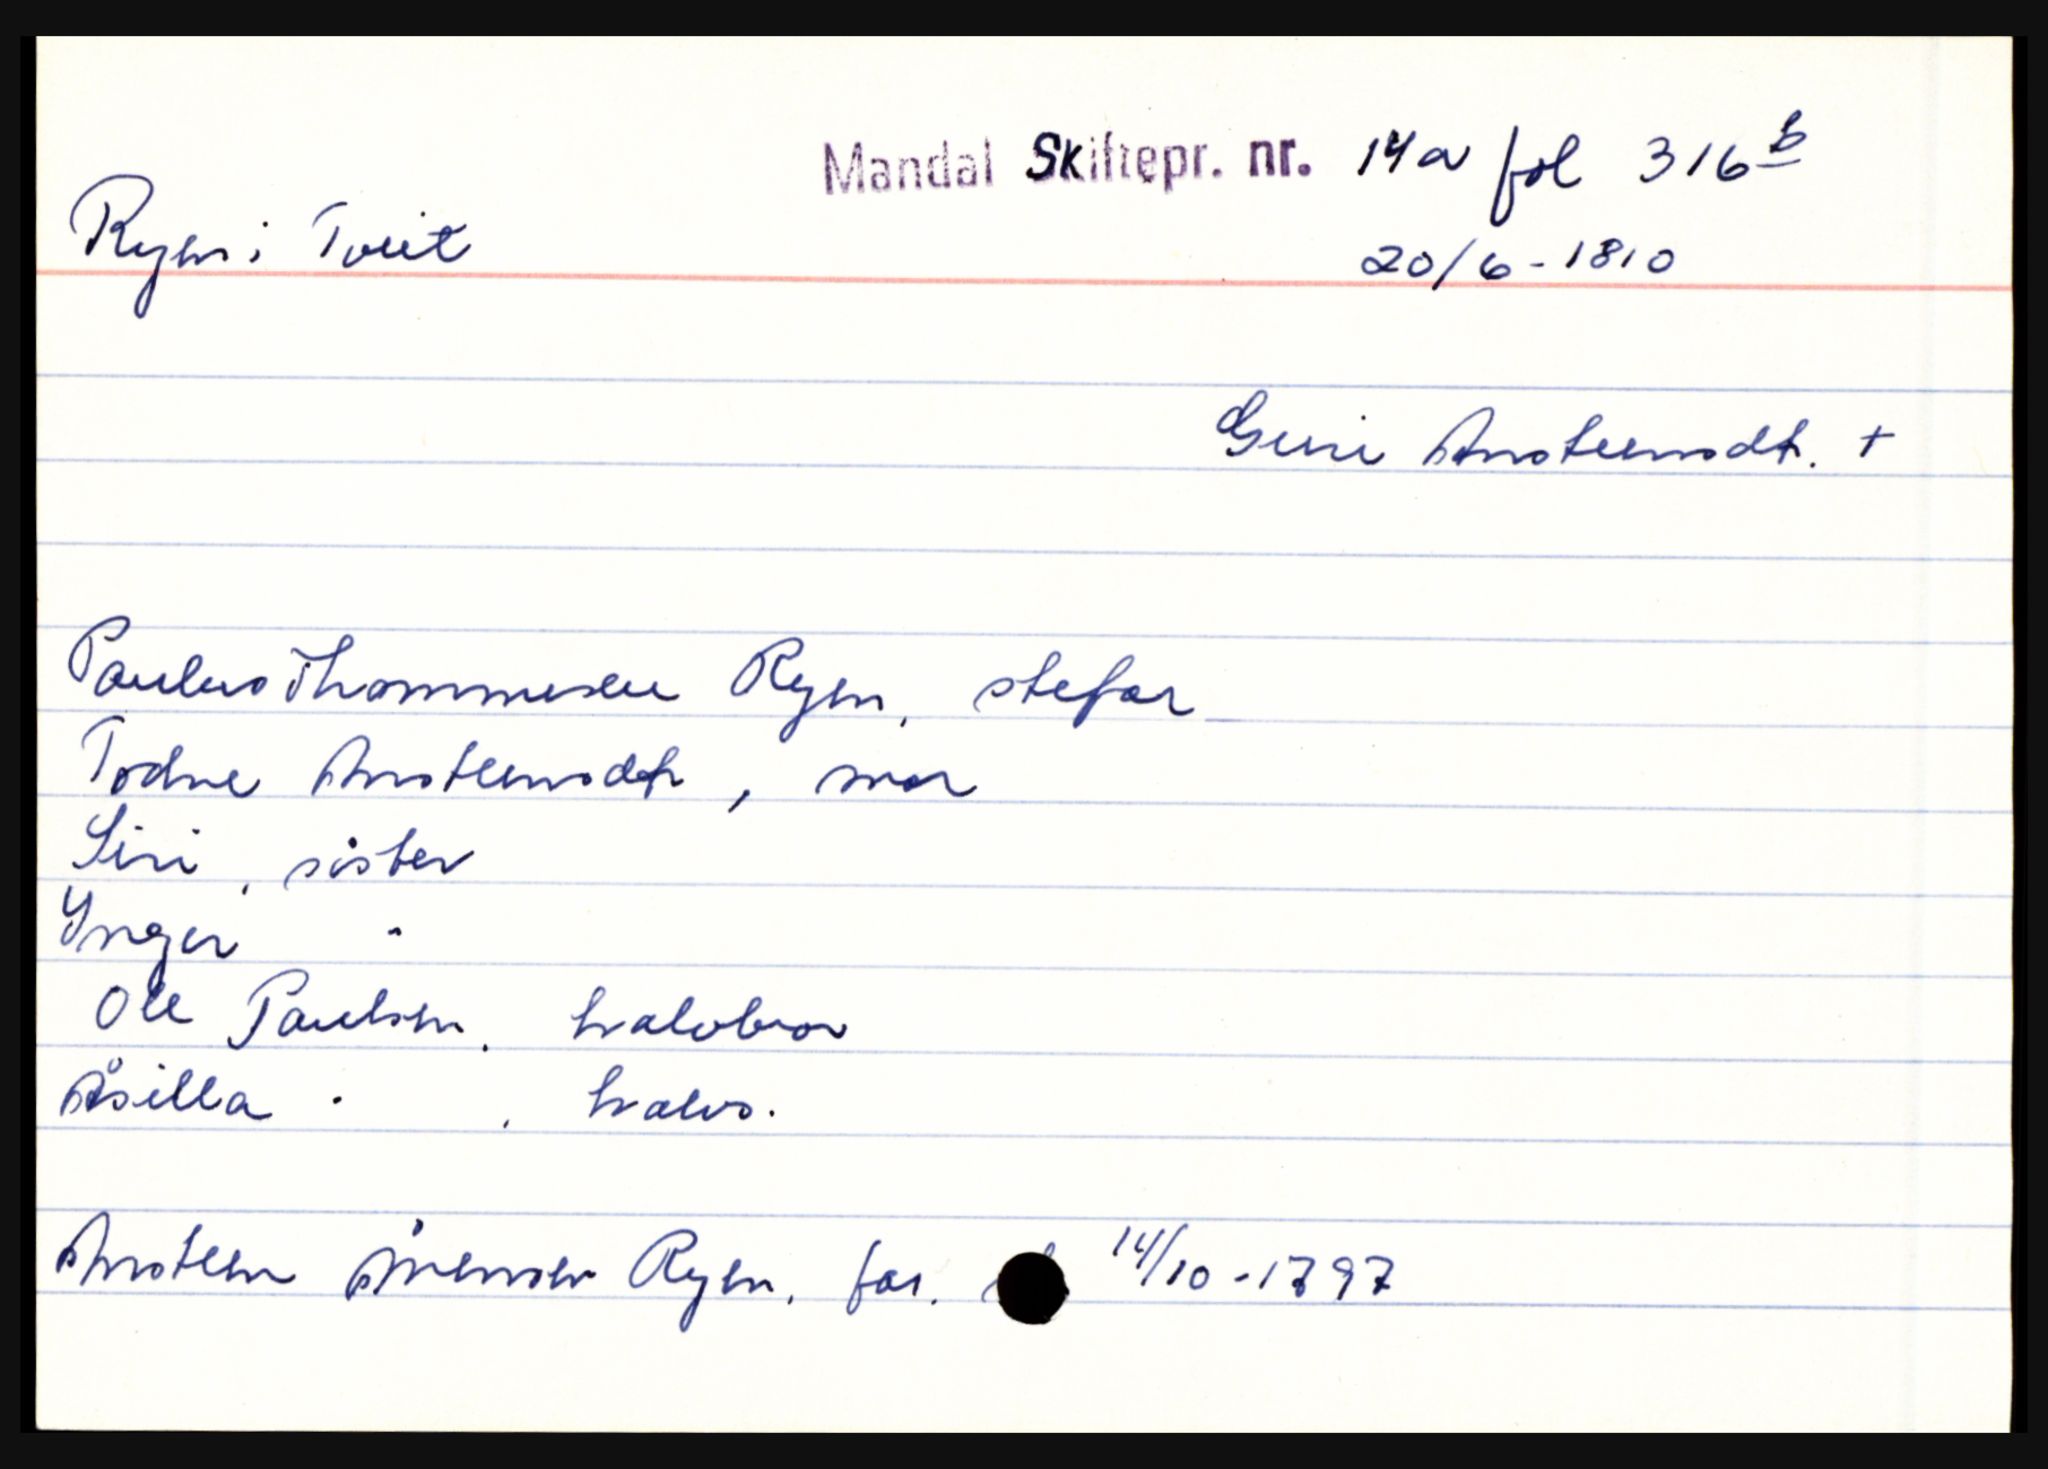 Mandal Skiftepr. nr. 14a fol 316b
Ryen i Tveit
20/6-1810
Guri Anstensdt. +
Paulus Thommesen Ryen, stefar
Todne Anstensdt, mor
Siri, sister
Ynger "
Ole Paulsen, halvbror
Åsilla " , halvs.
Ansten Ånensen Ryen, far. 14/10-1797